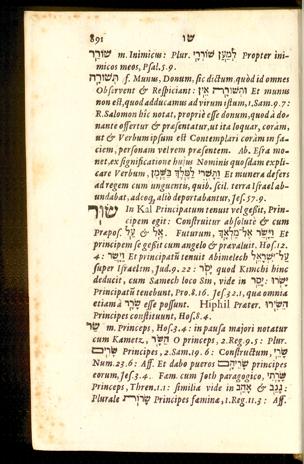 891 שו
שׁוֹרֵר m. Inimicus: Plur. לְמַעַן שׁוֹרְרָי Propter ini-
micos meos, Psal.5.9.
תְּשׁוּרָה f. Munus, Donum, sic dictum, quòd id omnes
Observent & Respiciant: וּתְשׁוּרָה אֵין Et munus
non est, quod adducamus ad virum istum, 1. Sam.9.7:
R. Salomon hic notat, propriè esse donum, quod à do-
nante offertur & præsentatur, ut ita loquar, coràm,
ut & Verbum ipsum est Contemplari coràm in fa-
ciem, personam velrem præsentem. Ab. Esra mo-
net, ex significatione hujus Nominis quosdam expli-
care Verbum, וַתָּשֻׁרִי לַמֶּלֶךְ בַּשֶּׁמֶן Et munera defers
ad regem cum unguentis, quib. scil. terra Israel ab-
undabat, adeoq, aliò deportabantur, Jes.57.9.
שׂוּר In Kal Principatum tenuit vel gessit, Prin-
cipem egit: Construitur absolutè & cum
Præpos. אֶל & עַל. Futurum, וַיָּשַׂר אֶל־מַלְאָךְ Et
principem se gessit cum angelo & prævaluit. Hos.12.
4: וַיָּשַׂר עַל־יִשְׂרָאֵל Et principatū tenuit Abimelech
super Israelem, Jud.9.22: יָשֹׂר quod Kimchi hinc
deducit, cum Samech loco Sin, vide in יָסַר: יָשֹׂרוּ
Principatū tenebunt, Pro.8.16. Jes.32.1, quæ omnia
etiam à שָׂרַר esse possunt. Hiphil Præter. הֵשִׂירוּ
Principes constituunt, Hos.8.4.
שַׂר m. Princeps, Hos.3.4: in pausa majori notatur
cum Kametz, הַשָּׂר O princeps, 2.Reg.9.5: Plur.
שָׂרִים Principes, 2.Sam.19.6: Constructum, שָׂרֵי
Num.23.6: Aff. Et dabo pueros שָׂרֵיהֶם principes
eorum, Jes.3.4. Fœm. cum Joth paragogico, שָׂרָתִי
Princeps, Thren.1.1: similia vide in אָהַב & גָּנַב:
Plurale שָׂרוֹת Principes fæminæ, 1.Reg.11.3: Aff.